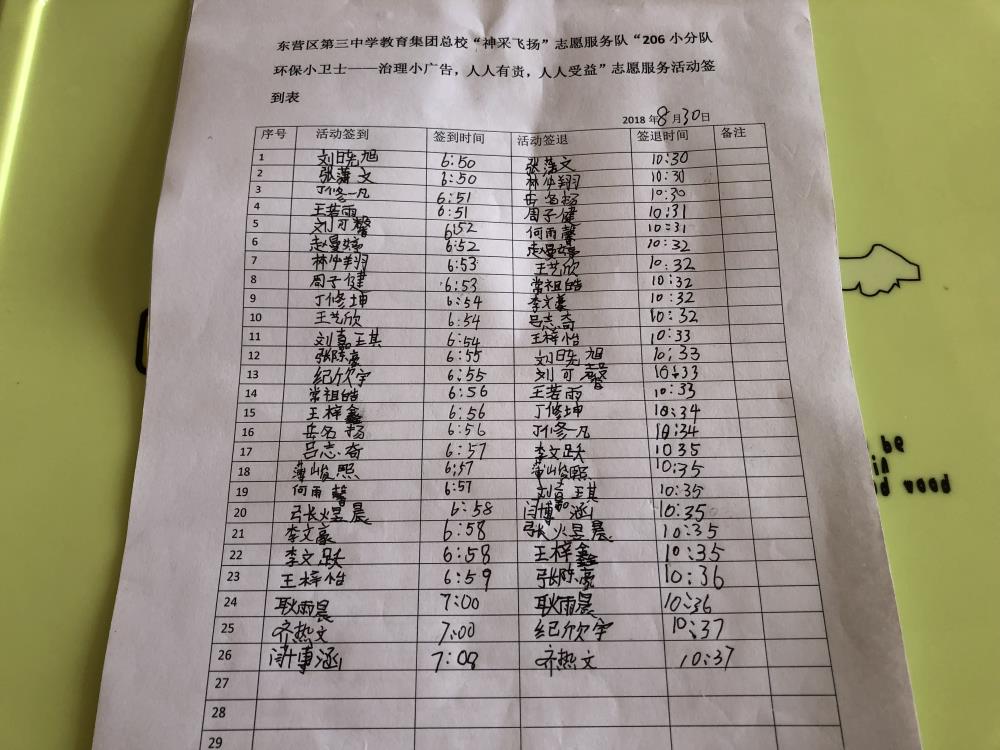 东营区第三中学教育集团总校“神采飞扬”志愿服务队“206 小分队
环保小卫士——治理小广告，人人有责，人人受益”志愿服务活动签
到表
2018 年8 月30日
序号 活动签到 签到时间 活动签退 签退时间 备注
1 刘晓旭 6:50 张潇文 10:30
2 张潇文 6:50 林仲翔 10:30
3 丁修一凡 6:51 岳名扬 10:30
4 王若雨 6:51 周子健 10:31
5 刘可馨 6:52 何雨馨 10:31
6 赵曼婷 6:52 赵曼婷 10:32
7 林仲翔 6:53 王艺欣 10:32
8 周子健 6:53 常祖皓 10:32
9 丁修坤 6:54 李文豪 10:32
10 王艺欣 6:54 吕志奇 10:32
11 刘嘉琪 6:54 王梓怡 10:33
12 张陈豪 6:55 刘晓旭 10:33
13 纪欣宇 6:55 刘可馨 10:33
14 常祖皓 6:56 王若雨 10:33
15 王梓鑫 6:56 丁修坤 10:34
16 岳名扬 6:56 丁修一凡 10:34
17 吕志奇 6:57 李文跃 10 35
18 薄峻熙 6:57 薄峻熙 10:35
19 何雨馨 6:57 刘嘉琪 10:35
20 张煜晨 6:58 闫博涵 10:35
21 李文豪 6:58 张煜晨 10:35
22 李文跃 6:58 王梓鑫 10:35
23 王梓怡 6:59 张陈豪 10:36
24 耿雨晨 7:00 耿雨晨 10:36
25 齐热文 7:00 纪欣宇 10:37
26 闫博涵 7:00 齐热文 10:37
27
28
29
be
in
vood